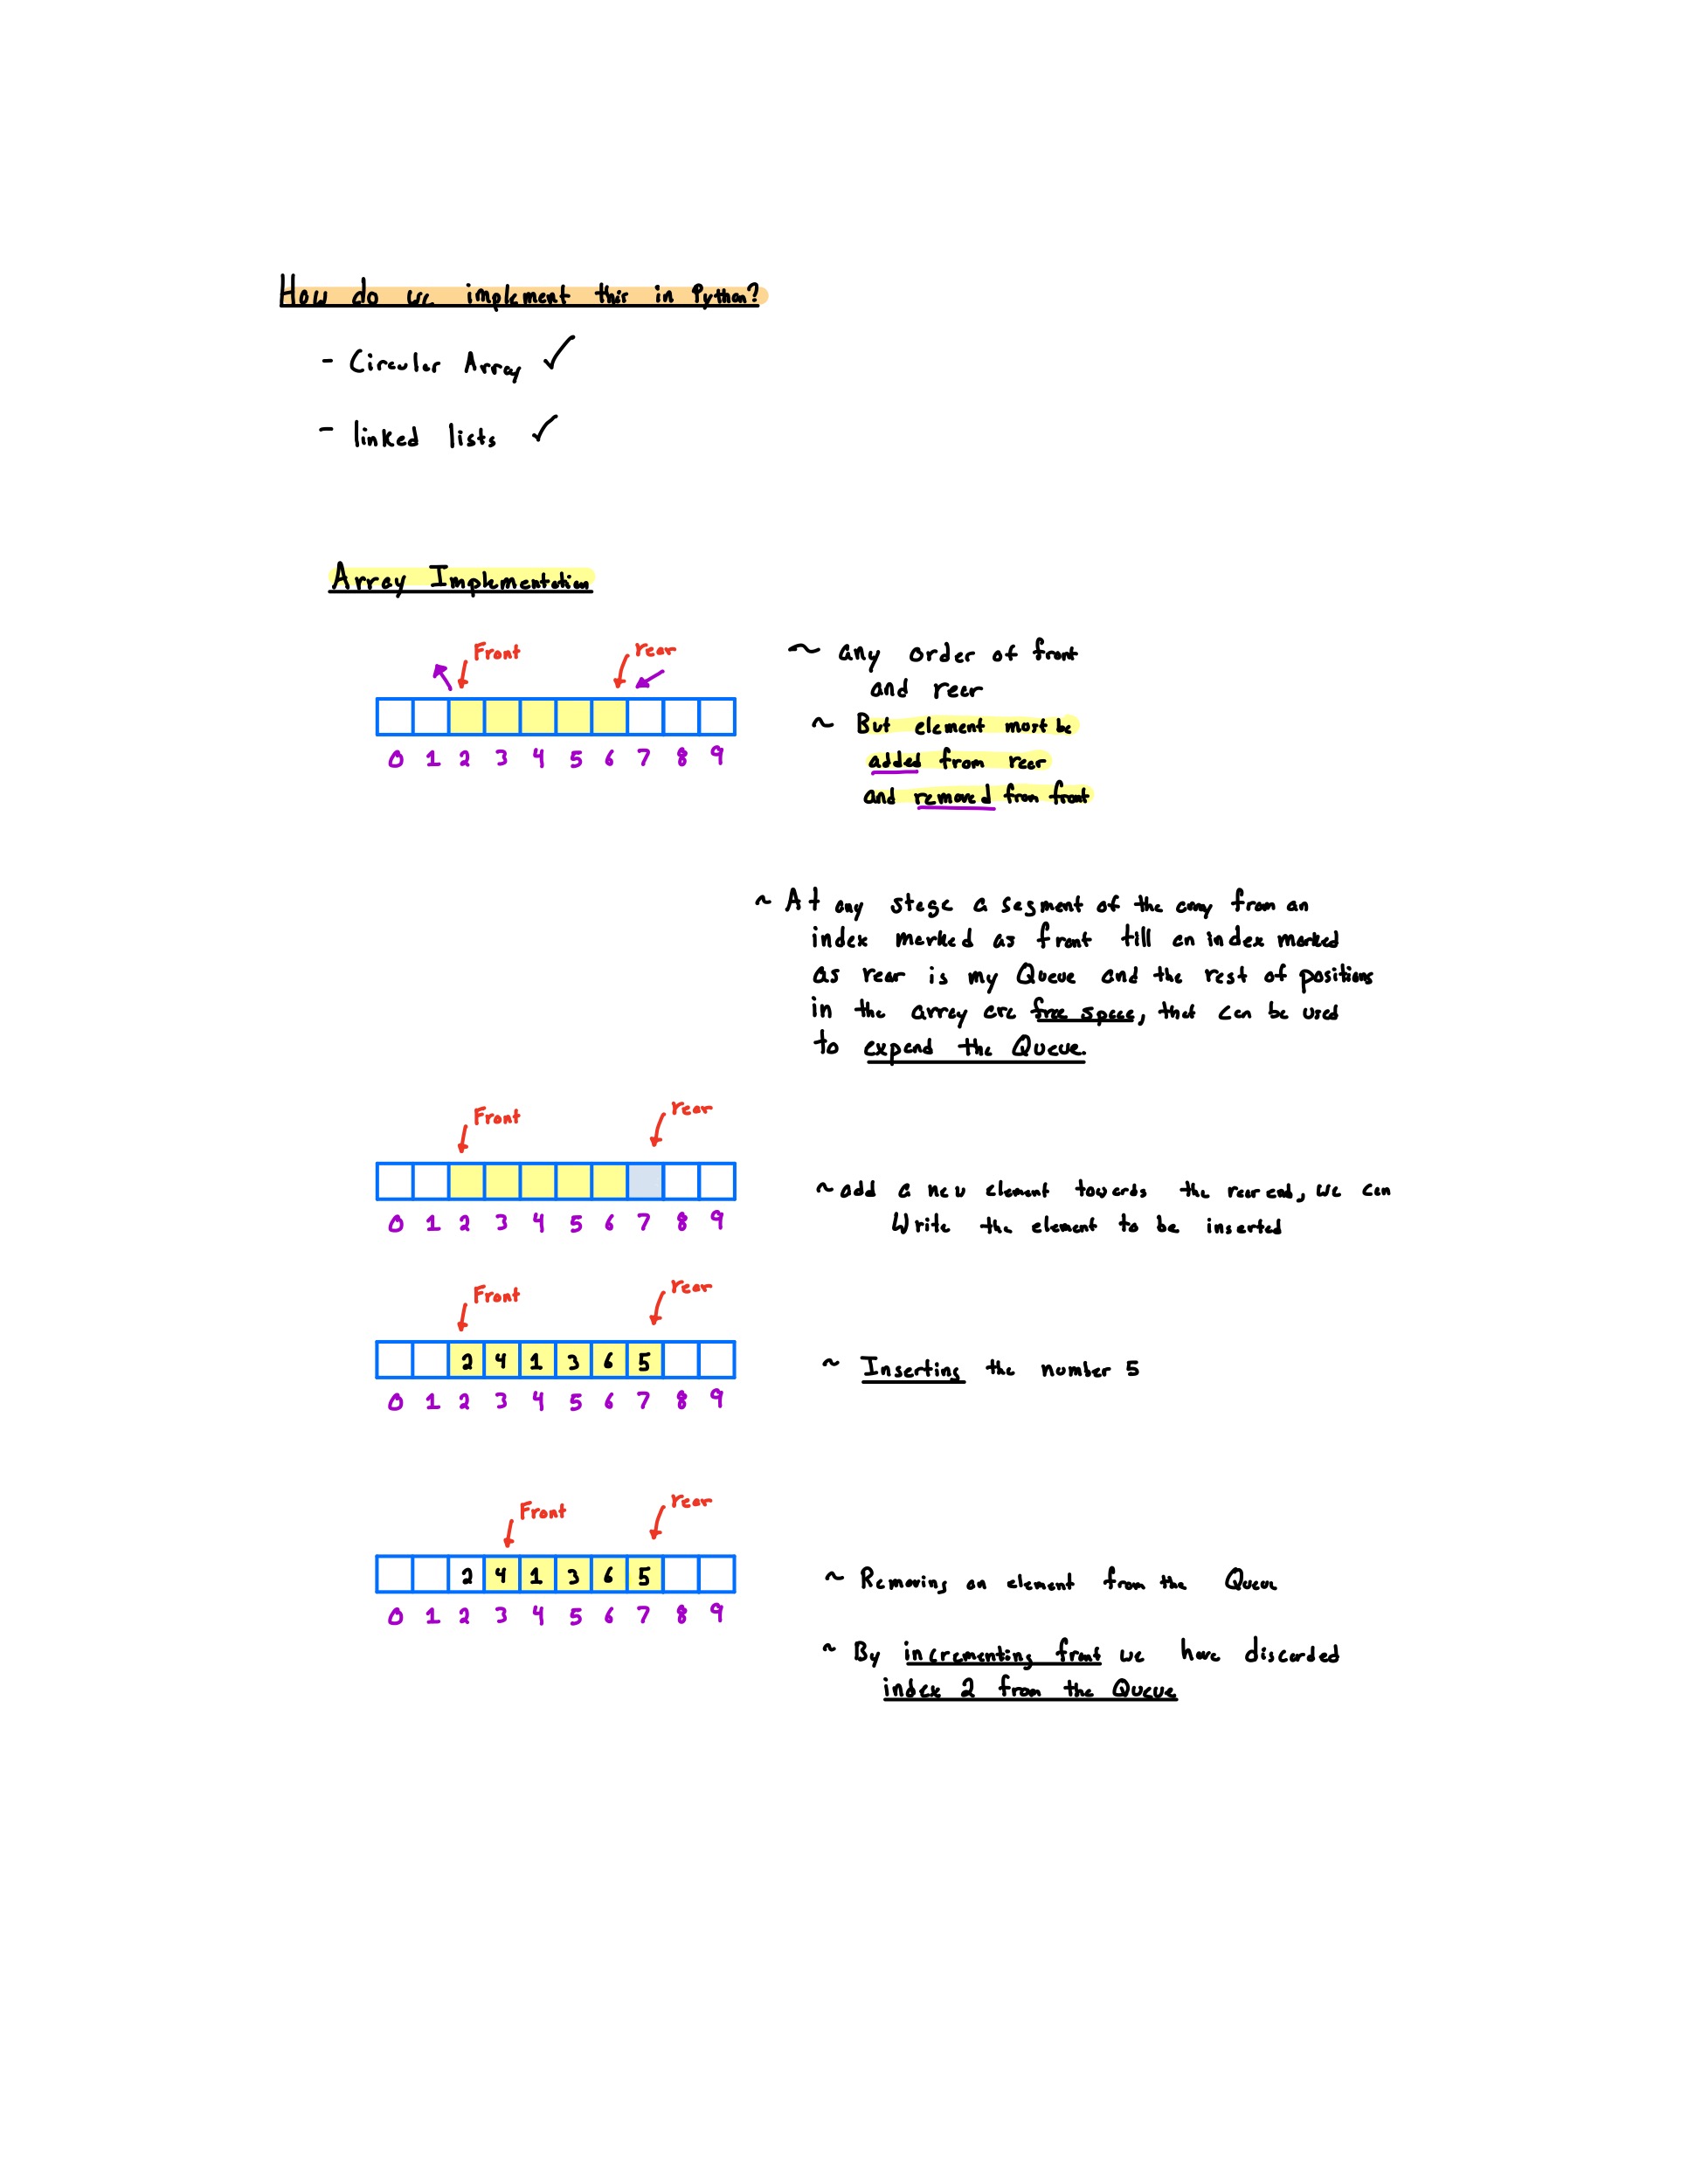 How do we implement this in Python?
- Circular Array ✓
- linked lists ✓
Array Implementation
Front rear
0 1 2 3 4 5 6 7 8 9
~ any order of front
and rear
~ But element must be
added from rear
and removed from front
~ At any stage a segment of the array from an
index marked as front till an index marked
as rear is my Queue and the rest of positions
in the array are free space, that can be used
to expand the Queue.
Front rear
0 1 2 3 4 5 6 7 8 9
~ add a new element towards the rear end, we can
Write the element to be inserted
Front rear
2 4 1 3 6 5
0 1 2 3 4 5 6 7 8 9
~ Inserting the number 5
Front rear
2 4 1 3 6 5
0 1 2 3 4 5 6 7 8 9
~ Removing an element from the Queue
~ By incrementing front we have discarded
index 2 from the Queue